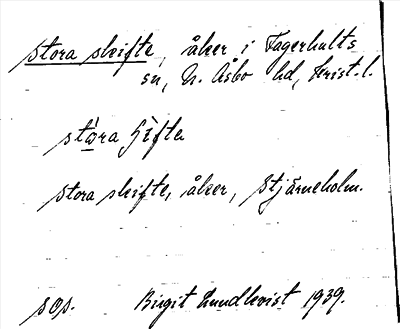 Stora skifte, åker i Fagerhults
sn, N. Åsbo hd, Krist.l.
stora
Stora skifte, åker, Stjärneholm.
sop. Birgit Lundkvist 1939.